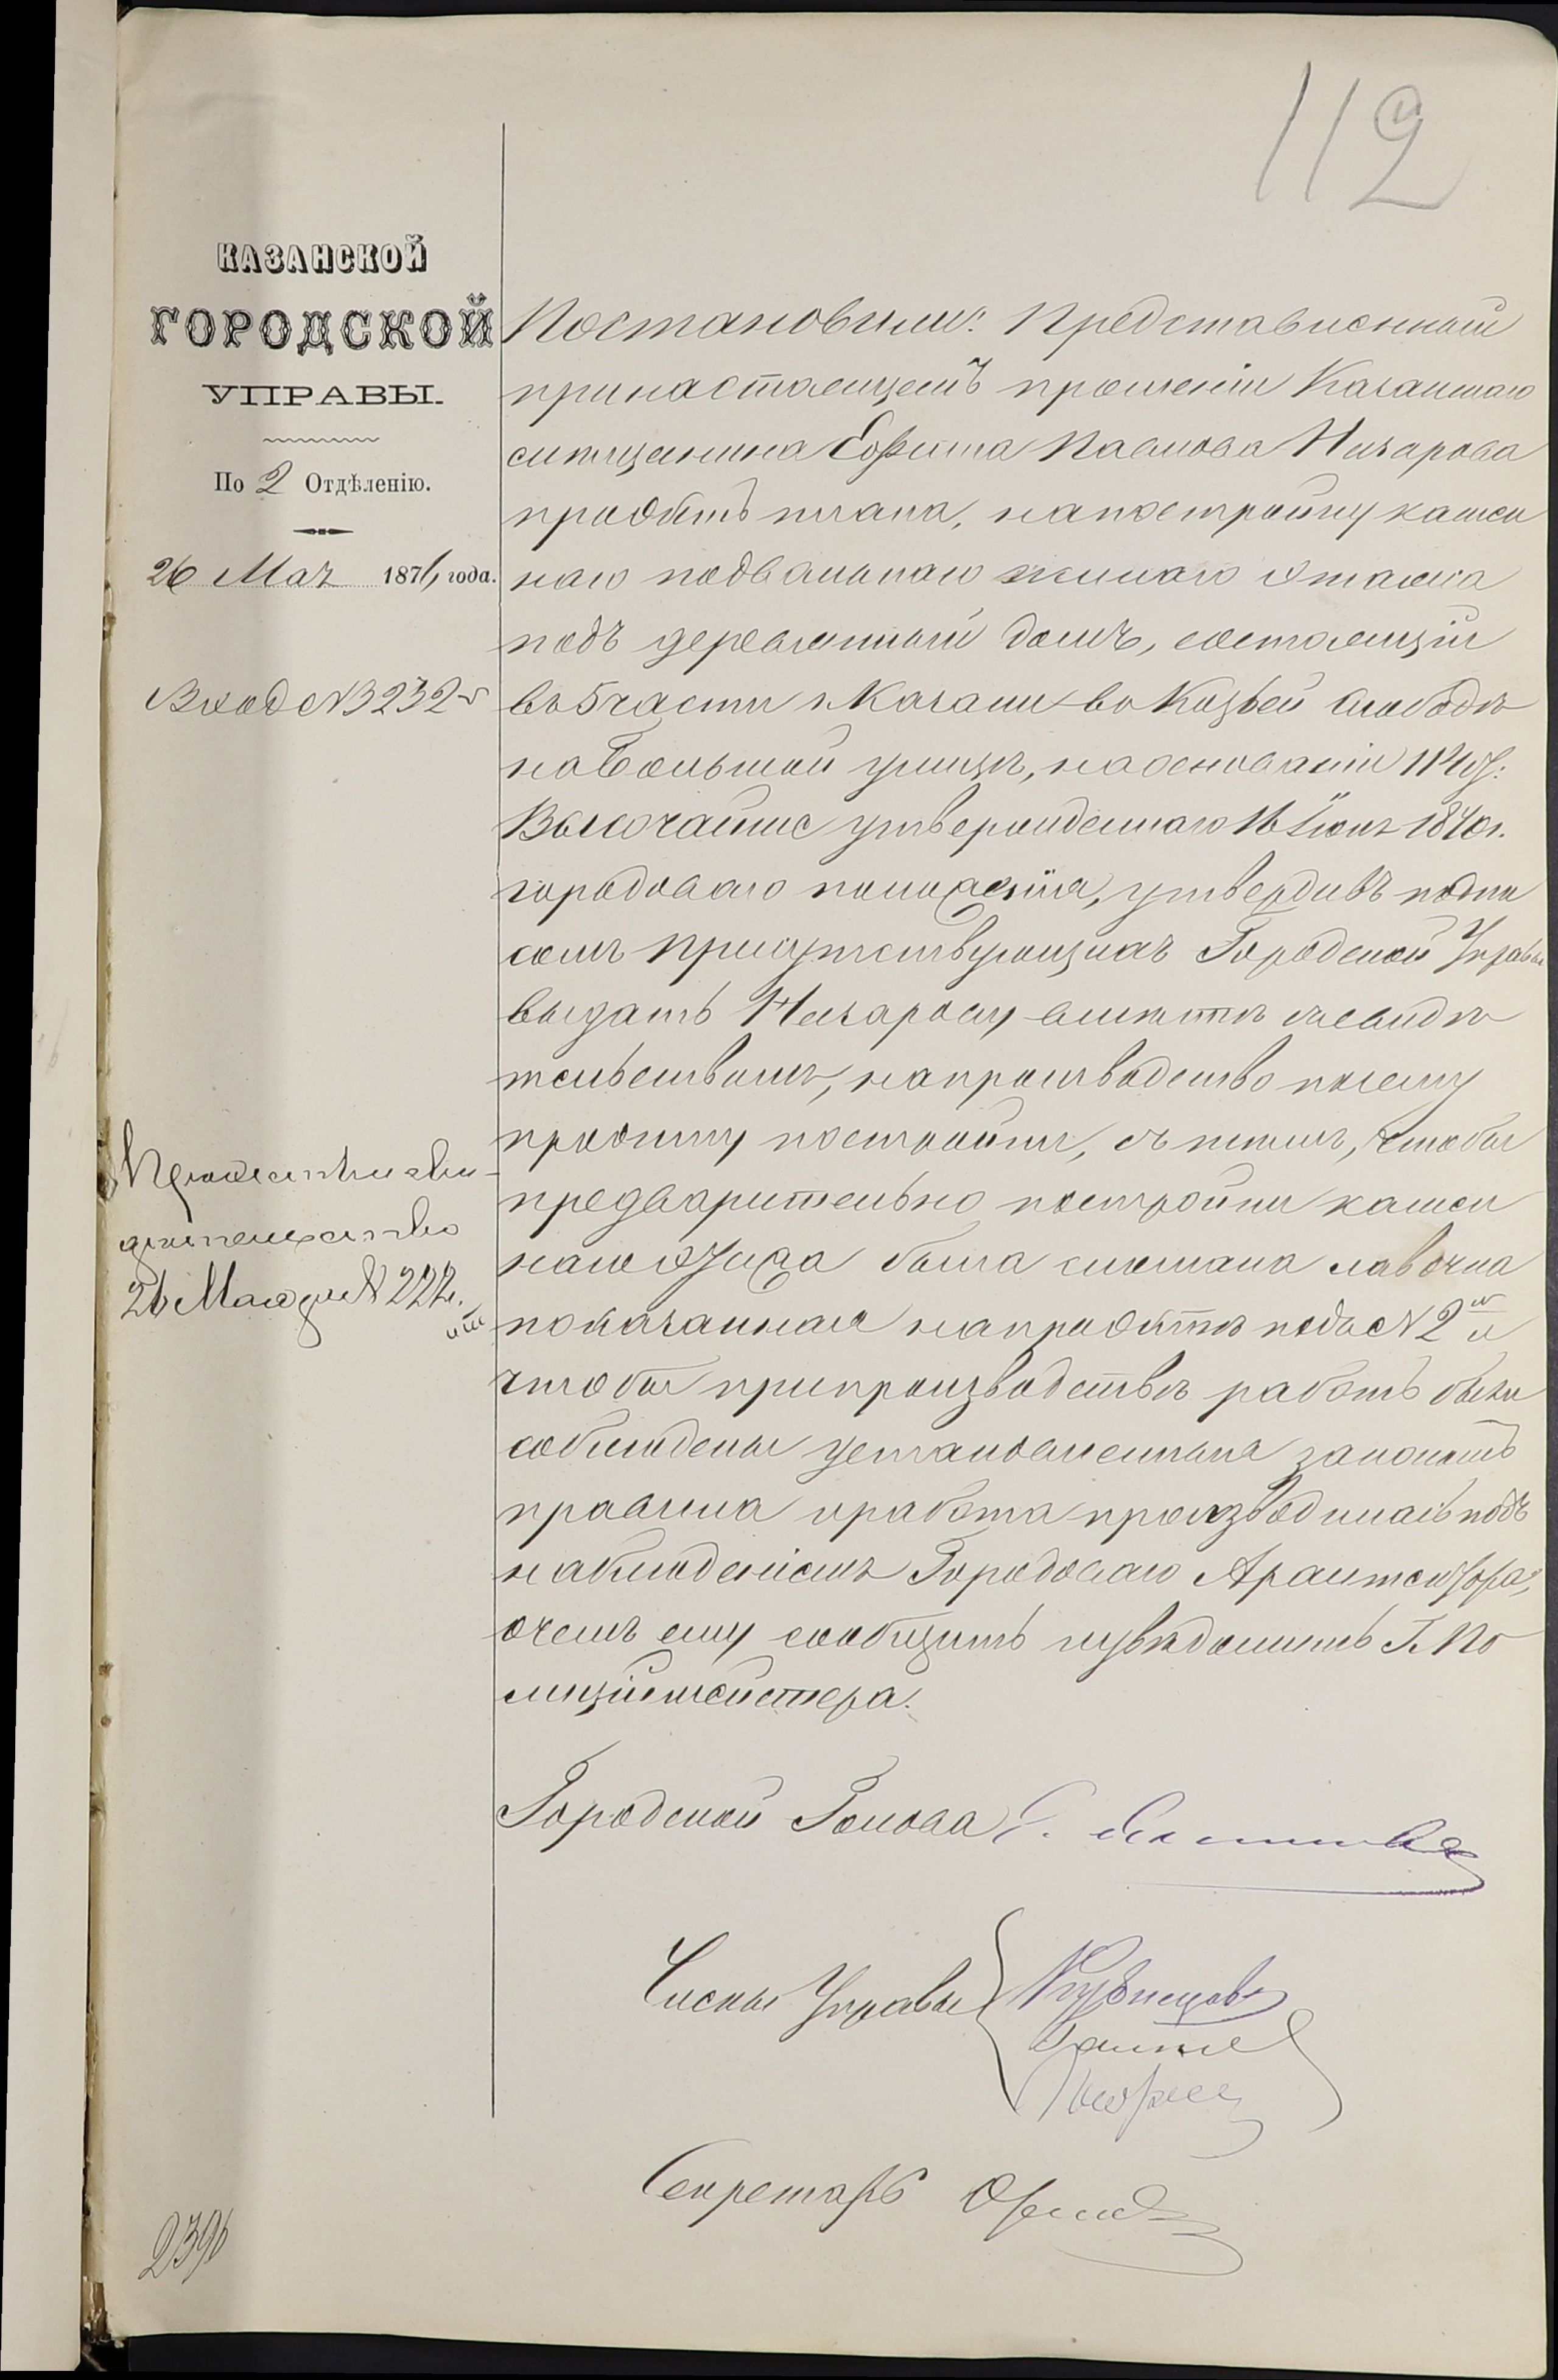 112
КАЗАНСКОЙ
ГОРОДСКОЙ
УПРАВЫ.
По 2 Отдѣленію.
26 Мая 1876 года.
Вход № 3232
Постановили: Представленный
при настоящемъ прошеніи Казанскаго
мѣщанина Ефима Павлова Назарова
проэктъ плана, на постройку камен
наго подвальнаго жилаго этажа
подъ деревянный домъ, состоящій
въ 5 части г. Казани въ Козьей слободѣ
на Большой улицѣ, на основаніи 114 §:
Высочайше утвержденнаго 16 Іюня 1870 г.
городоваго положенія, утвердивъ подпи
сомъ присутствующихъ Городской Управы
выдать Назарову вмѣстѣ съ свидѣ
тельствомъ, на производство по сему
проэкту постройки, съ тѣмъ, чтобы
предварительно постройки камен
наго этажа была сломана лавочка
показанная на проэктѣ подъ № 2 и
чтобы при производствѣ работъ были
соблюдены установленныя закономъ
правила и работа производилась подъ
наблюденіемъ Городоваго Архитектора,
о чемъ ему сообщить и увѣдомить Г. По
лиціймейстера.
26 Мая за № 222
Городской Голова
Члены Управы
Кузнецовъ
Секретарь
2396